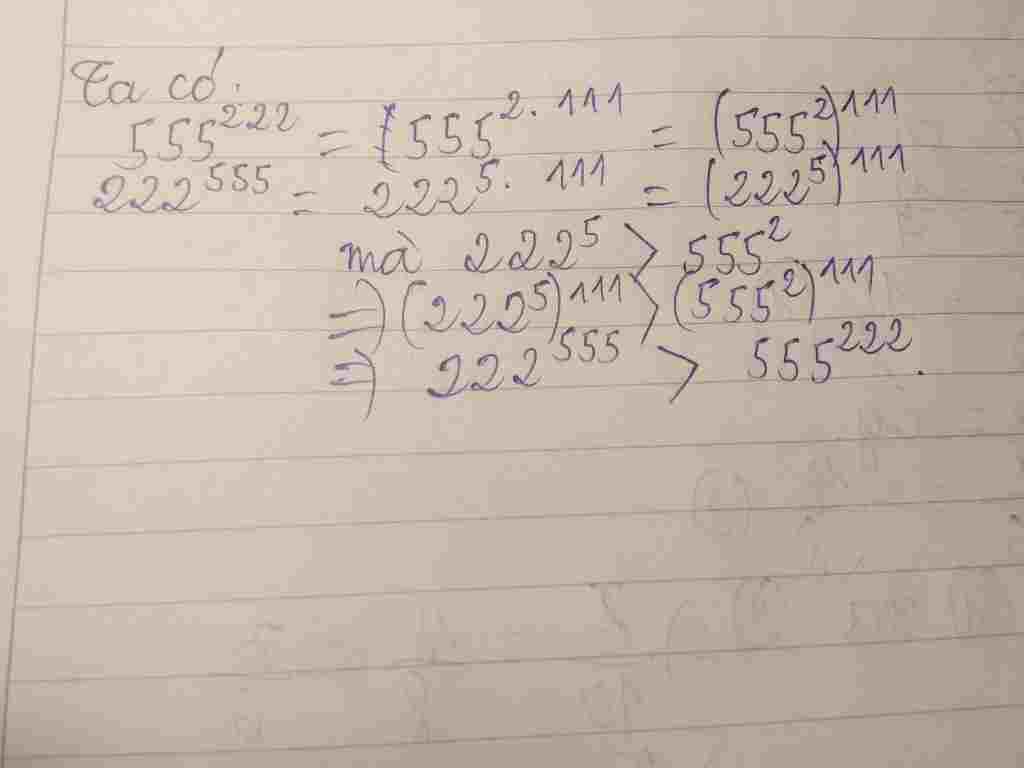 Ta có:
555^222 = 555^2. 111 = (555^2)^111
222^555 = 222^5. 111 = (222^5)^111
mà 222^5 > 555^2
=> (222^5)^111 > (555^2)^111
=> 222^555 > 555^222.